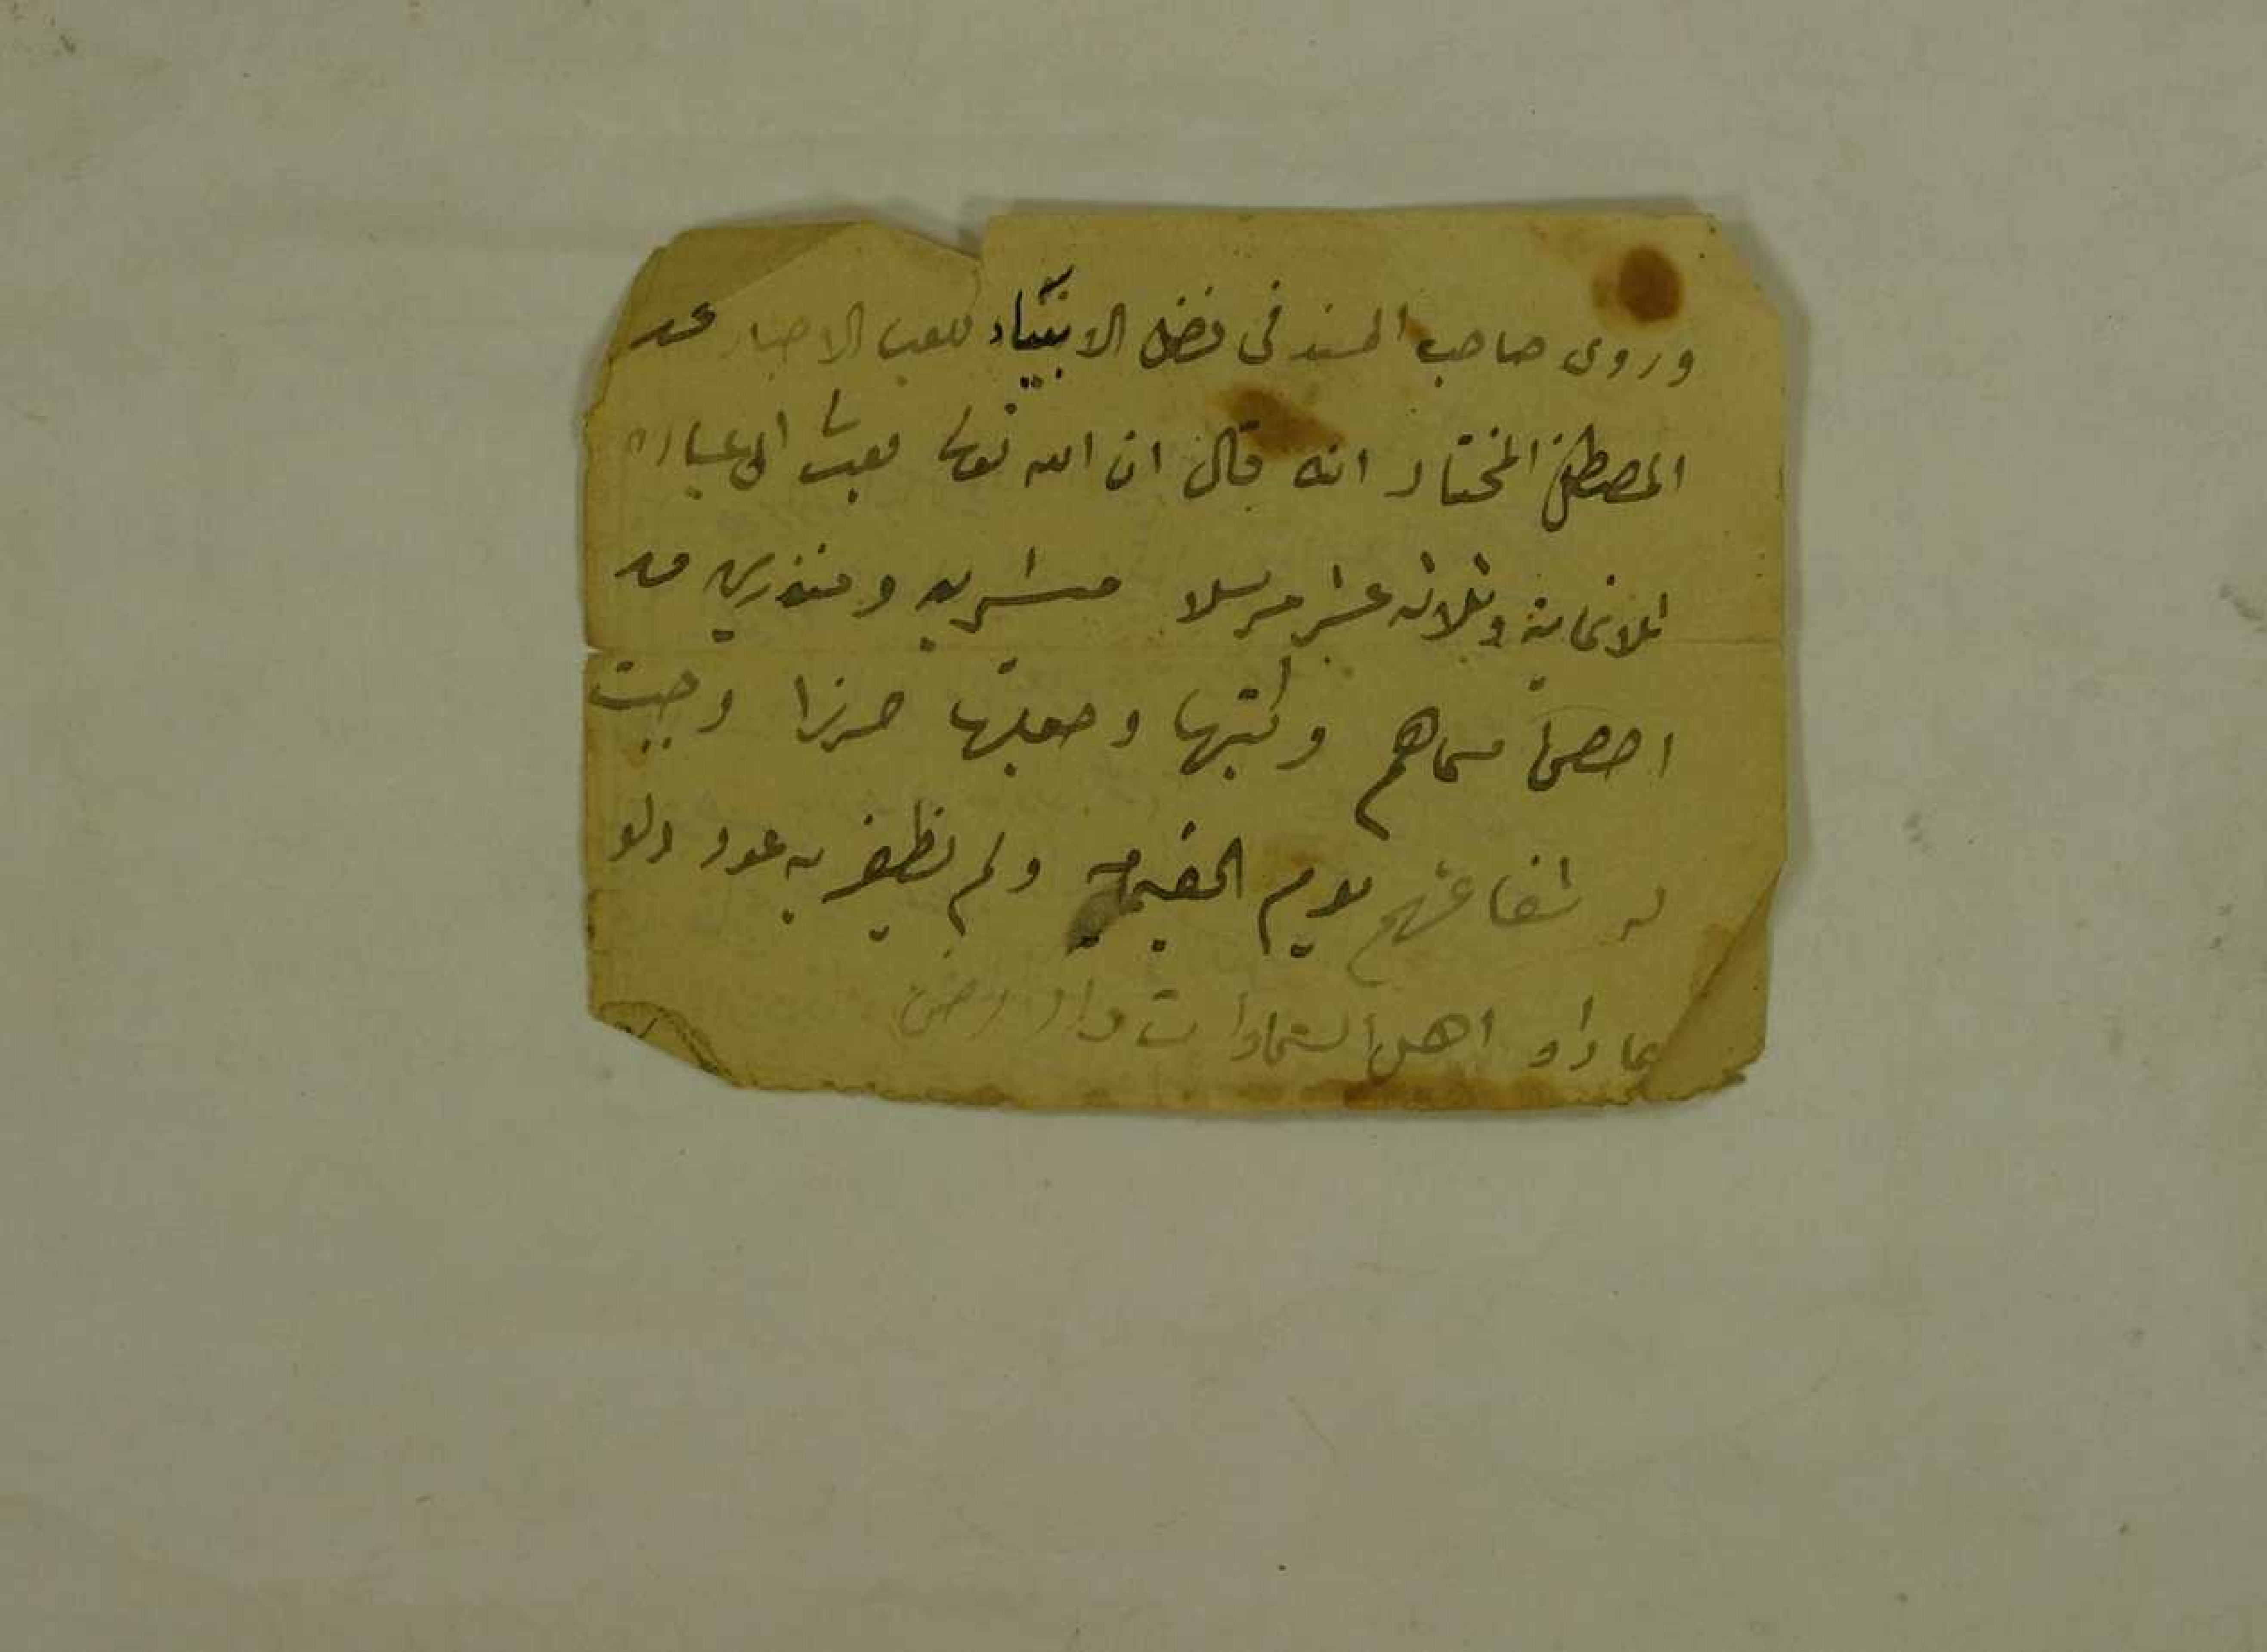 وروى صاحب المسند فى فضل الانبياء لكعب الاحبار عن
المصطفى المختار انه قال ان الله تعالى بعث الى عباده
ثلاثماية وثلاثه عشر مرسلا مبشرين ومنذرين من
احصى اسماهم وكتبها وجعلها حرزا وجبت
له شفاعتهم يوم القيمة ولم يظفر به عدو ولو
عاداه اهل السماوات والارض